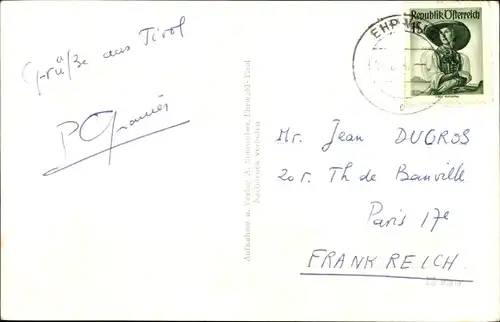 Grüße aus Tirol
Mr. Jean DUCROS
20 r. Th de Banville
Paris 17e
FRANKREICH.
Aufnahme u. Verlag A. Ehrwald-Tirol
Nachdruck verboten
Republik Österreich
EHRW